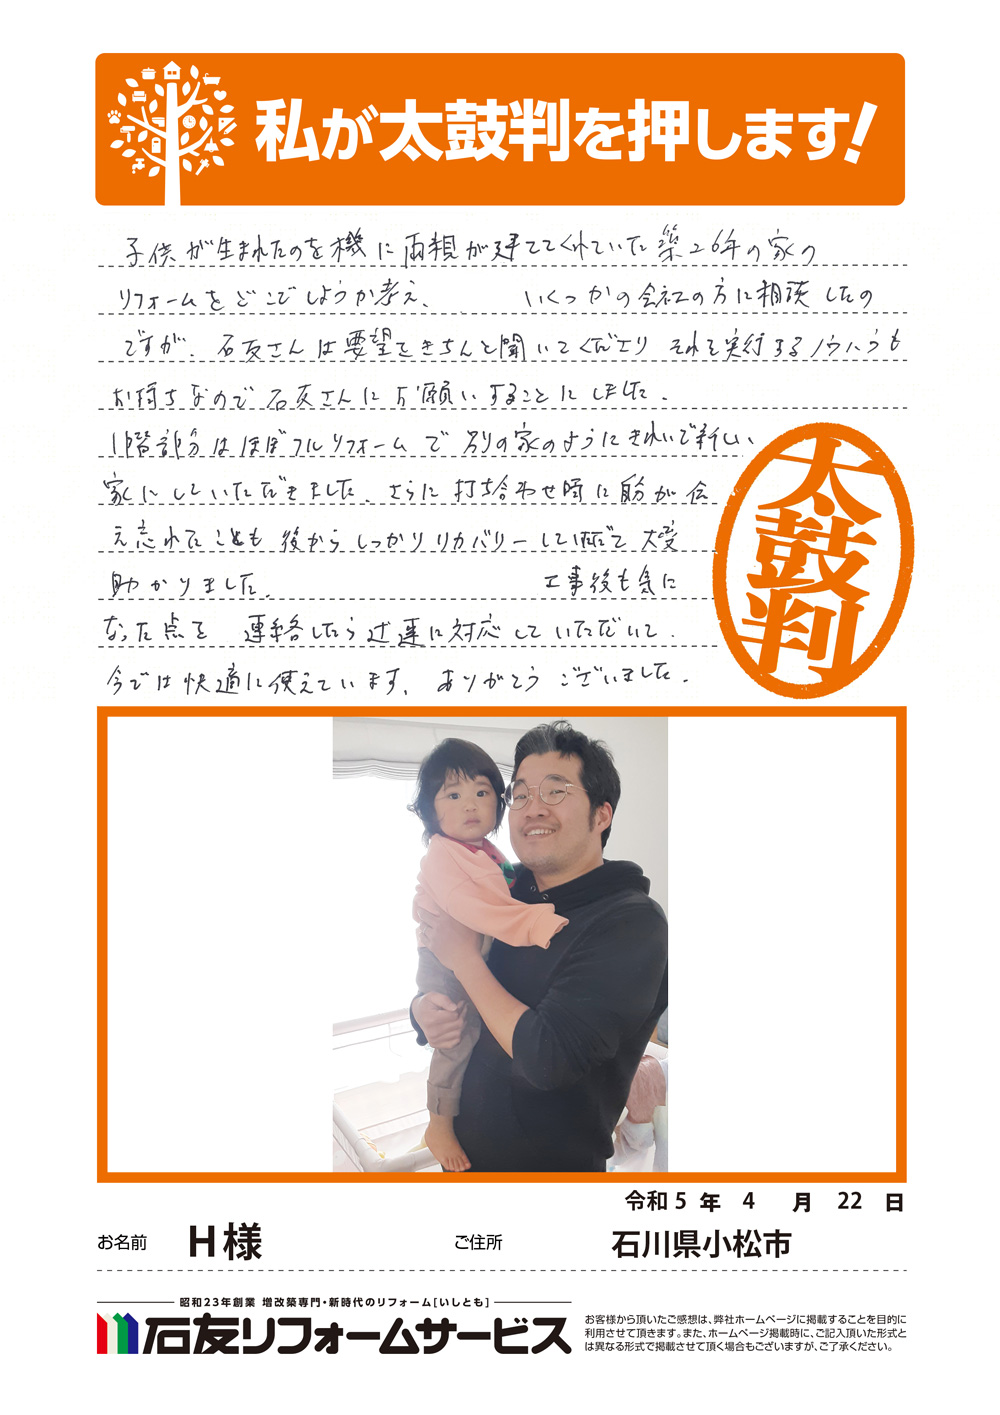 私が太鼓判を押します!
子供が生まれたのを機に両親が建ててくれていた築26年の家の
リフォームをどこでしようか考え、 いくつかの会社の方に相談したの
ですが、石友さんは要望をきちんと聞いてくださり それを実行するノウハウも
お持ちなので石友さんにお願いすることにしました。
1階部分はほぼフルリフォームで 別の家のようにきれいで新しい
家にしていただきました。さらに打ち合わせ時に 伝
え忘れたことも 後からしっかりリカバリーして 大変
助かりました。 工事後も気に
なった点を 連絡したら迅速に対応していただいて、
今では快適に使えています。ありがとうございました。
太鼓判
令和 5 年 4 月 22 日
お名前 H様 ご住所 石川県小松市
昭和23年創業 増改築専門・新時代のリフォーム[いしとも]
石友リフォームサービス
お客様から頂いたご感想は、弊社ホームページに掲載することを目的に
利用させて頂きます。また、ホームページ掲載時に、ご記入頂いた形式と
は異なる形式で掲載させて頂く場合もございますが、ご了承ください。